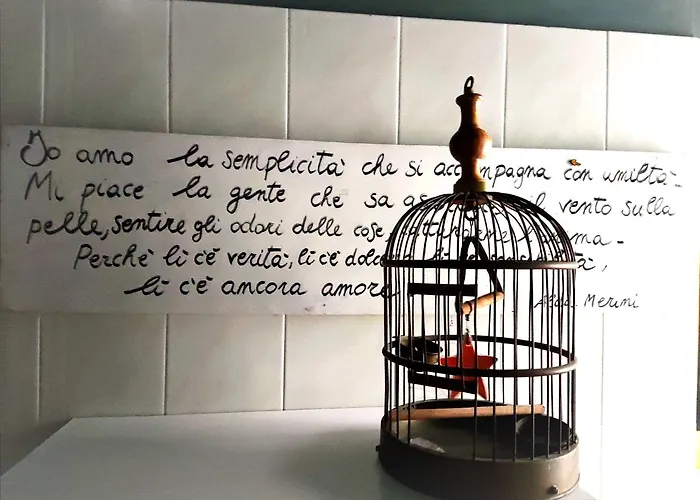 Io amo la semplicità che si accompagna con umiltà-
Mi piace la gente che sa vento sulla
pelle, sentire gli odori delle cose,
Perchè lì c'è verità, lì c'è
lì c'è ancora amore
Alda Merini